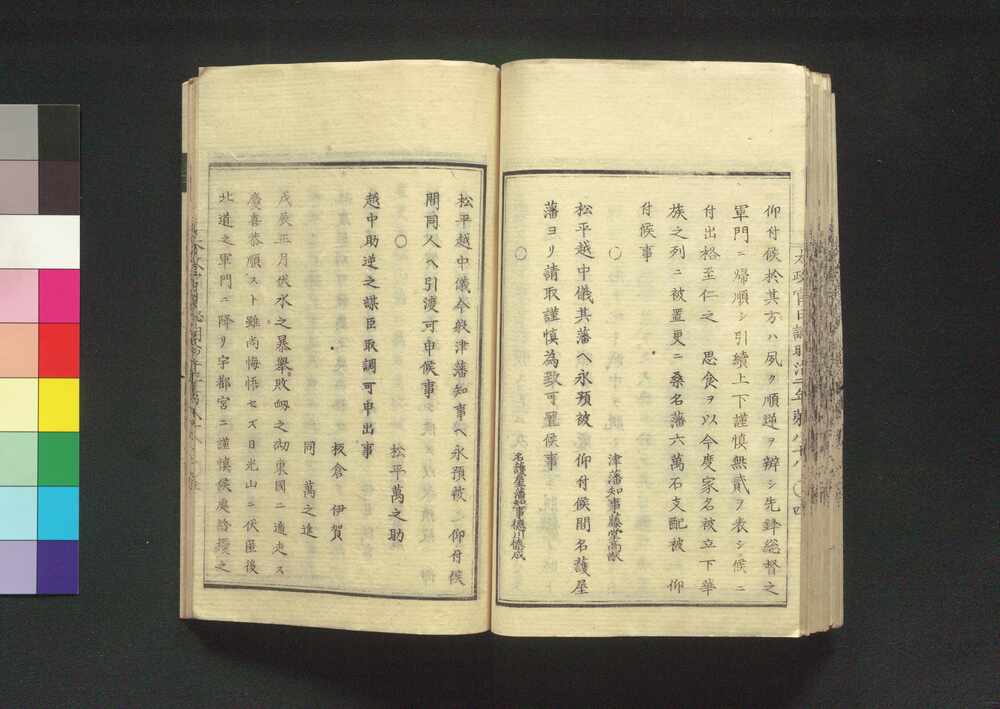 仰付候於其方ハ夙ク順逆ヲ辨シ先鋒総督之
軍門ニ帰順シ引續上下謹慎無貳ヲ表シ候ニ
付出格至仁之 思食ヲ以今度家名被立下華
族之列ニ被置更ニ桑名藩六萬石支配被 仰
付候事
○ 津藩知事藤堂高猷
松平越中儀其藩ヘ永預被 仰付候間名護屋
藩ヨリ請取謹慎為致可置候事
○ 名護屋藩知事徳川徳成
松平越中儀今般津藩知事ヘ永預被 仰付候
間同人ヘ引渡可申候事
○ 松平萬之助
越中助逆之謀臣取調可申出事
板倉 伊賀
同 萬之進
戊辰正月伏水之暴擧敗衂之砌東國ニ遁走ス
慶喜恭順スト雖尚悔悟セズ日光山ニ伏匿後
北道之軍門ニ降リ宇都宮ニ謹慎候處